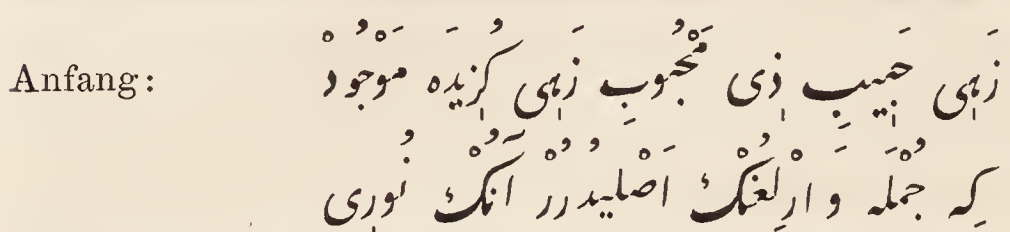 Anfang: زَهِی حَبِیبِ ذِی مَحْبُوبِ زَهِی كُزِیدَه مَوْجُودْ
كِه جُمْلَه وَارْلِغُنْكْ اَصْلِیدُرُرْ آنُكْ نُورِی